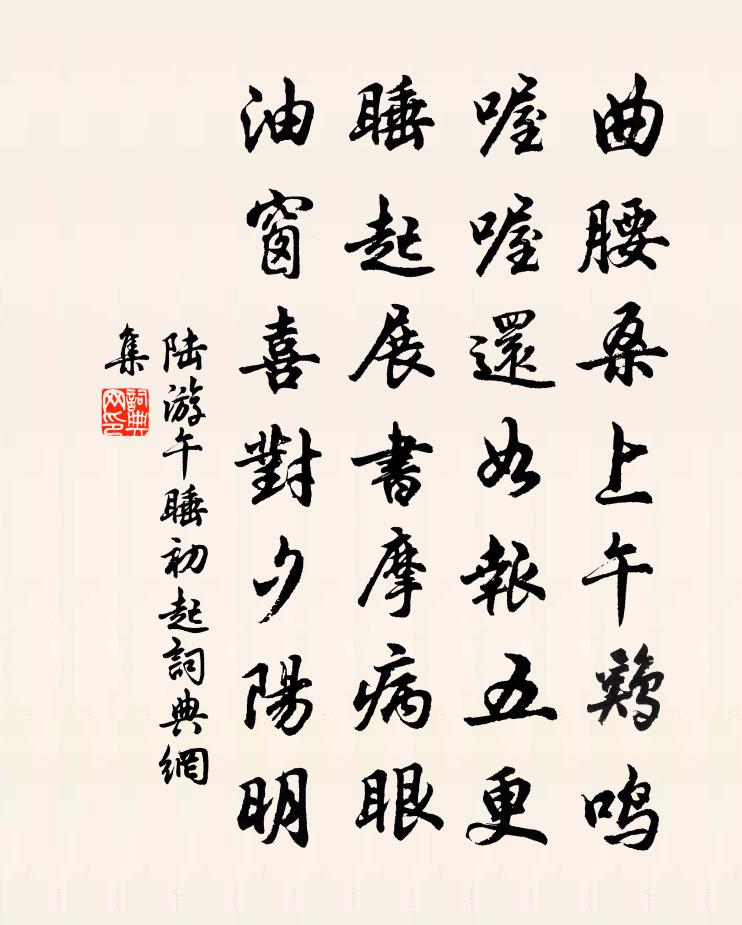 曲腰桑上午鷄鳴
喔喔還如報五更
睡起展書摩病眼
油窗喜對夕陽明
陸游午睡初起詞典網
集
詞典
网印